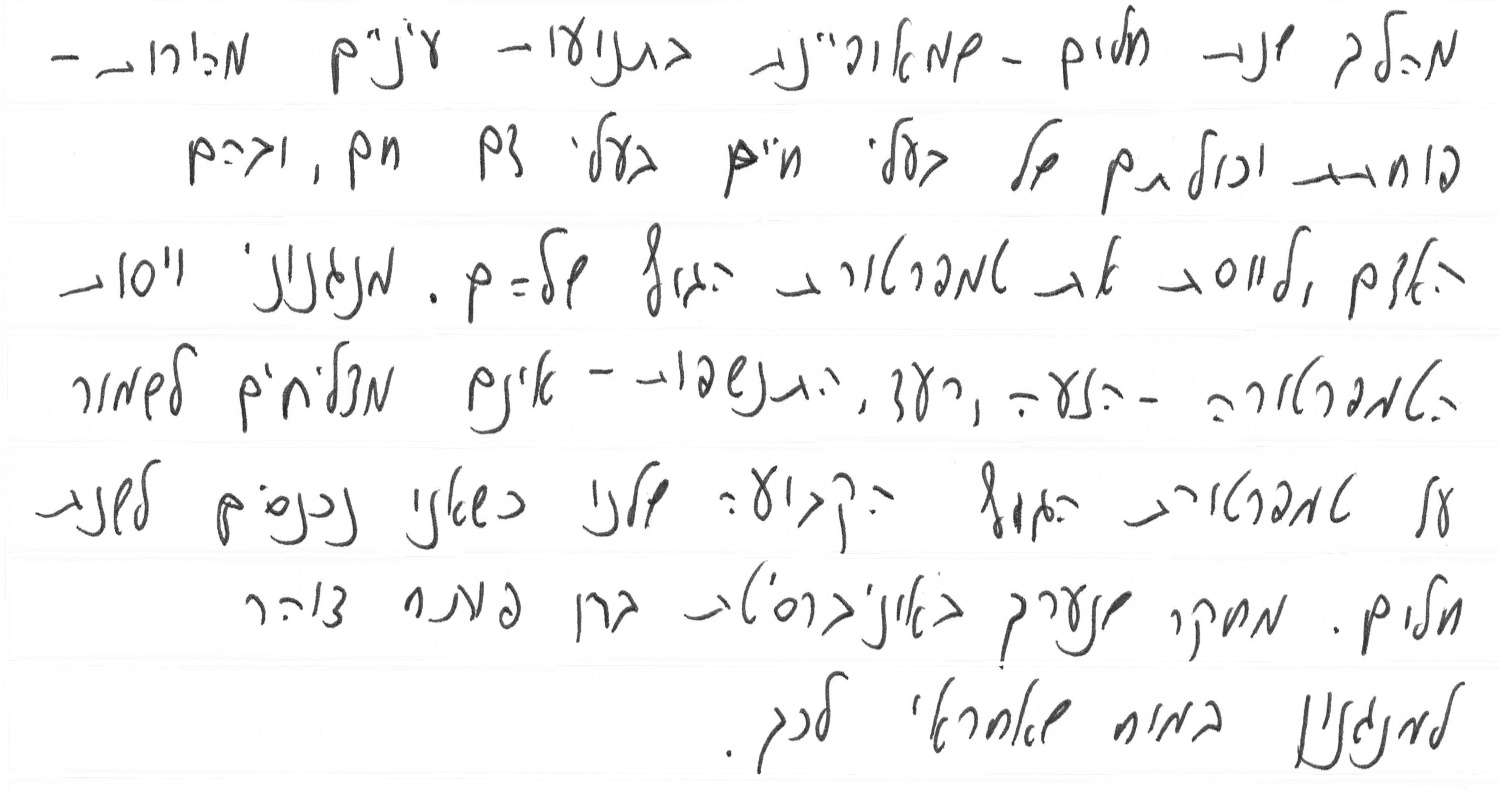 מהלך שנת חלום - שמאופיינת בתנועות עיניים מהירות -
פוחתת יכולתם של בעלי חיים בעלי דם חם, ובהם
האדם, לווסת את טמפרטורת הגוף שלהם. מנגנוני ויסות
הטמפרטורה - הזעה, רעד, התנשפות - אינם מצליחים לשמור
על טמפרטורת הגוף הקבועה שלנו כשאנו נכנסים לשנת
חלום. מחקר שנערך באוניברסיטת ברן פותח צוהר
למנגנון במוח שאחראי לכך.